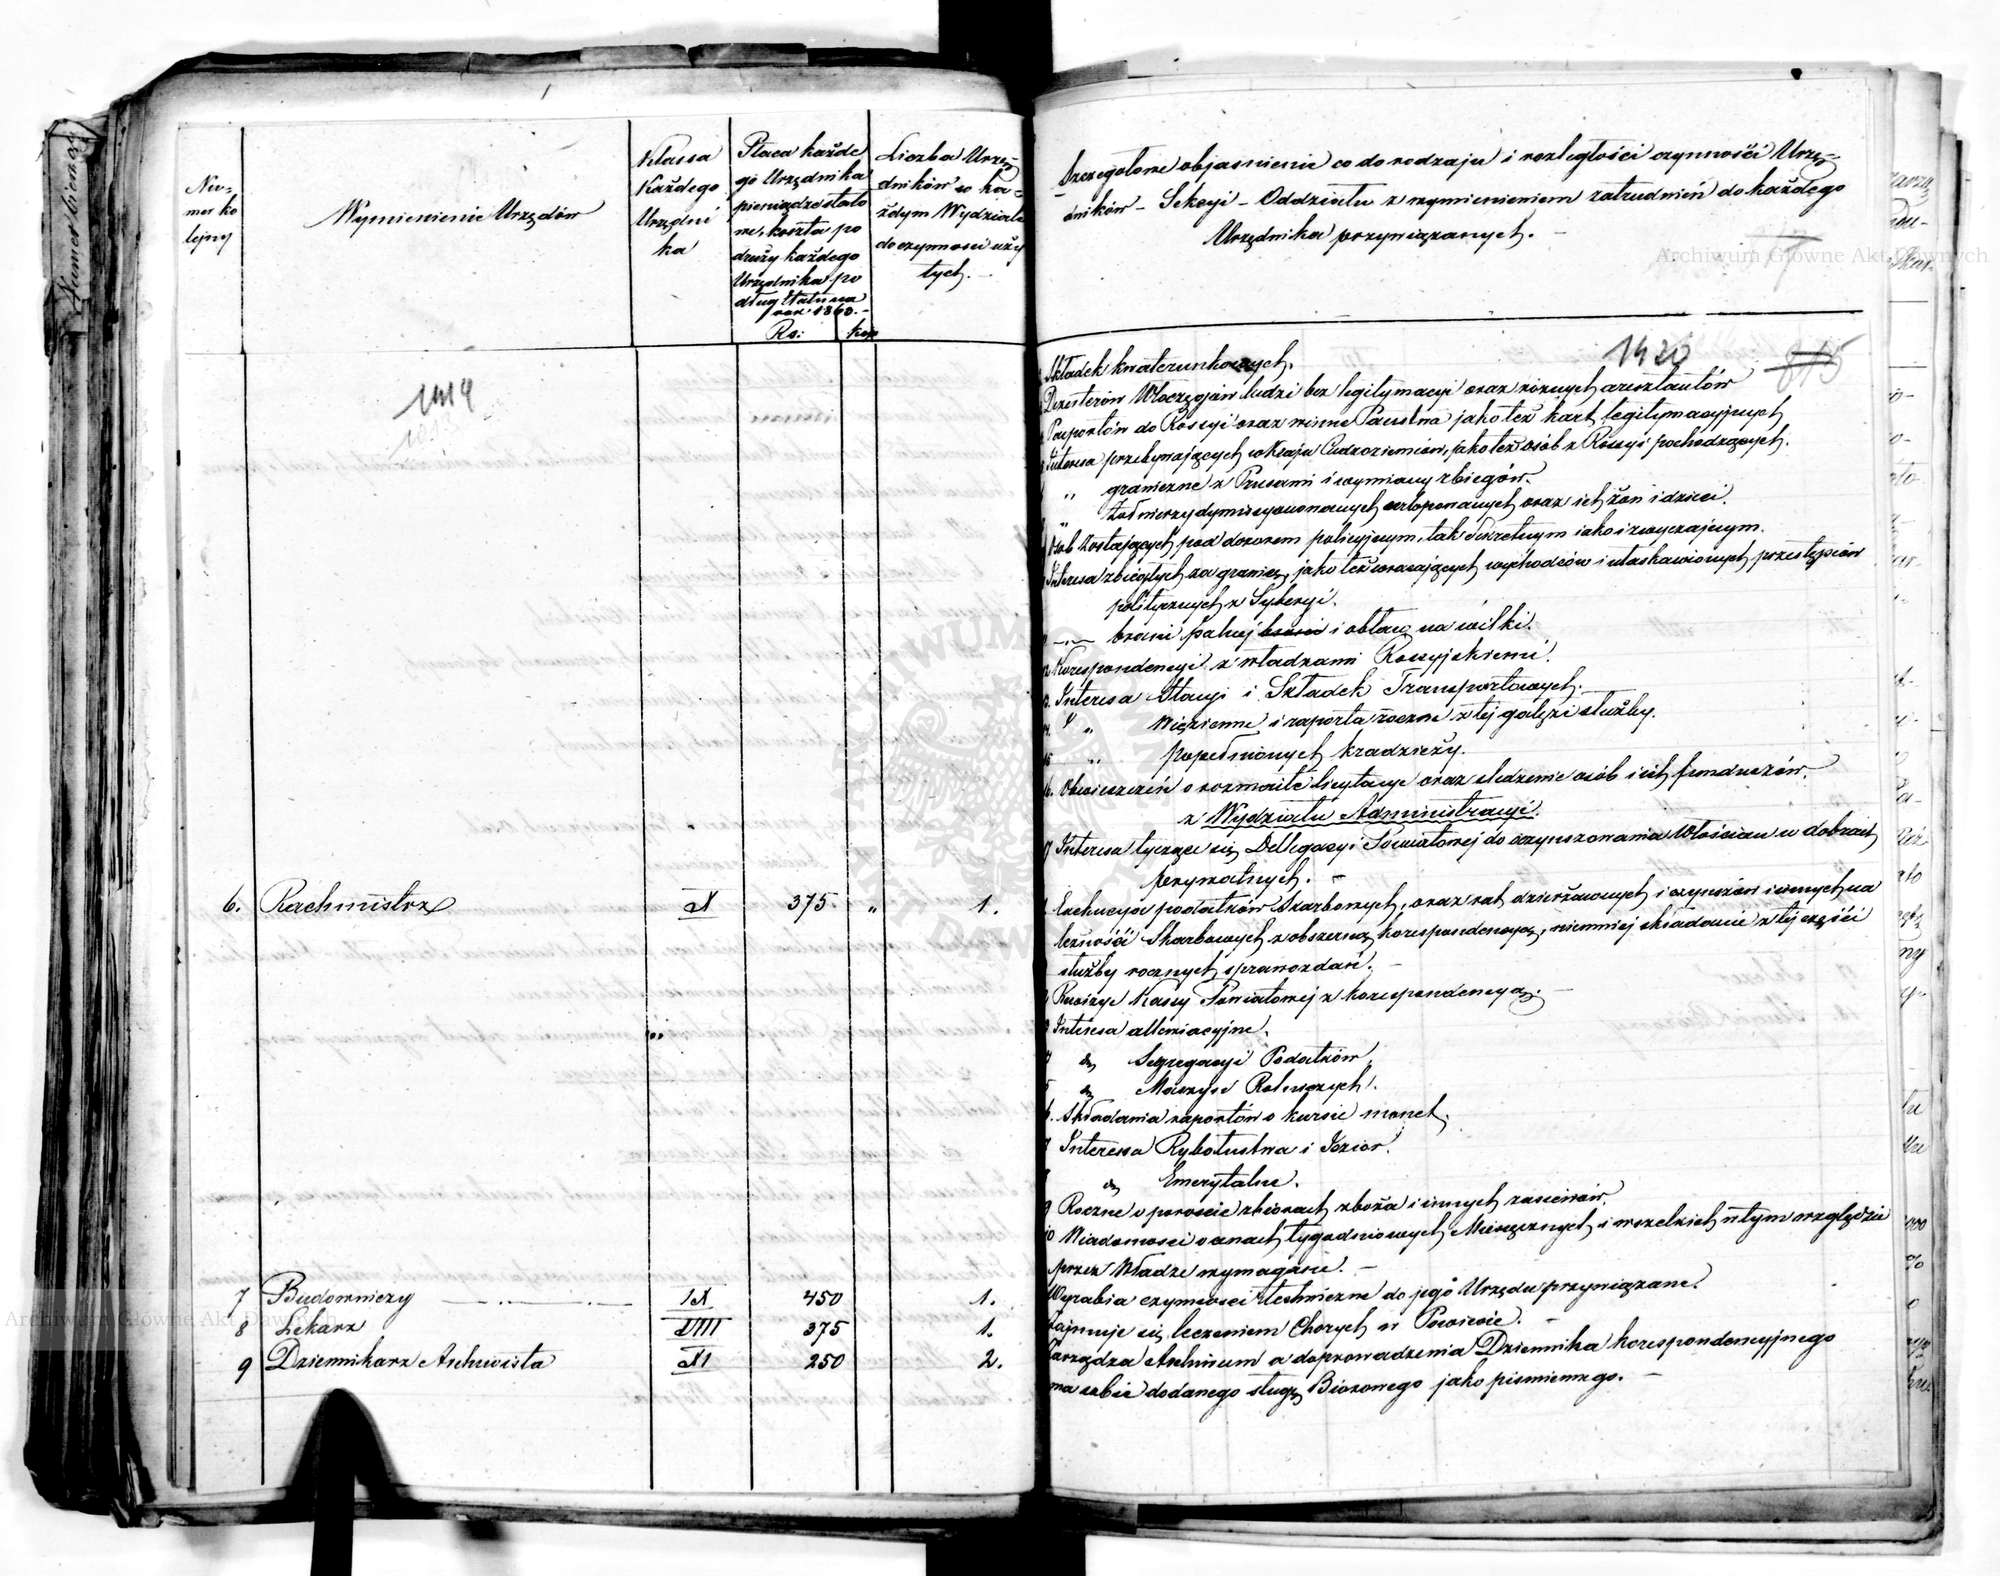 Nu-
mer ko
lejny
Wymienienie Urzędów
Klassa
Każdego
Urzędni
ka
Płaca każde
go Urzędnika
pieniądze stało
we, koszta po
dróży każdego
Urzędnika po
dług Etatu na
rok 1860.-
Rs: kop
Liczba Urzę-
dników w ka-
żdym Wydziale
do czynności uży
tych.-
1419
6. Rachmistrz X 375. " 1.
7 Budowniczy IX 450 1.
8 Lekarz VIII 375 1.
9 Dziennikarz Archiwista XI 250 2.
Szczegółowe objaśnienie co do rodzaju i rozległości czynności Urzę-
dników - Sekcyi - Oddziału z wymienieniem zatrudnień do każdego
Urzędnika przywiązanych.-
1420 815
Składek kwaterunkowych.
Dezerterów Włóczęgów ludzi bez legitymacyi oraz różnych aresztantów
Paszportów do Rossyi oraz w inne Państwa jako też kart legitymacyjnych
Interesa przebywających w Kraju Cudzoziemców, jako też osób z Rossyi pochodzących.
" graniczne z Prusami i wymiany zbiegów.
" Żołnierzy dymissyonowanych urlopowanych oraz ich żon i dzieci.
Osób zostających pod dozorem policyjnym, tak sekretnym jako i zwyczajnym.
Interesa zbiegłych za granicę, jako też wracających wychodców i ułaskawionych przestępców
politycznych z Syberyi.
broni palnej broni i obław na wilki.
Korespondencyi z władzami Rossyjskiemi.
Interesa Stacyi i Składek Transportowych.
14. " " Więzienne i raporta roczne z tej gałęzi służby.
15 " popełnionych kradzieży.
16. Obwieszczeń o rozmaite licytacye oraz śledzenie osób i ich funduszów.
z Wydziału Administracyi.
Interesa tyczące się Dellegacyi Powiatowej do oczynszowania Włościan w dobrach
prywatnych.-
Exekucya podatków Skarbowych, oraz rat dzierżawowych i czynszów i innych na
leżności Skarbowych z obszerną korespondencyą, niemniej składanie z tej części
służby rocznych sprawozdań.-
Rewizye Kassy Powiatowej z korespondencyą.-
Interesa alleniacyjne.
4 do Segregacyi Podatków.
5 do Maszyn Rolniczych.
6. Składania raportów o kursie monet.
7 Interessa Rybołustwa i Jezior.
do Emerytalne.
9 Roczne o poroście zbiorach zboża i innych zasiewów.
10 Wiadomości o cenach tygodniowych Miesięcznych i wszelkich w tym względzie
przez Władze wymagane.-
Wyrabia czynności techniczne do jego Urzędu przywiązane.
Zajmuje się leczeniem Chorych w Powiecie.-
Zarządza Archiwum a do prowadzenia Dziennika korespondencyjnego
ma sobie dodanego sługę Biórowego jako piśmiennego.-
Archiwum Główne Akt Dawnych
Archiwum Główne Akt Dawnych